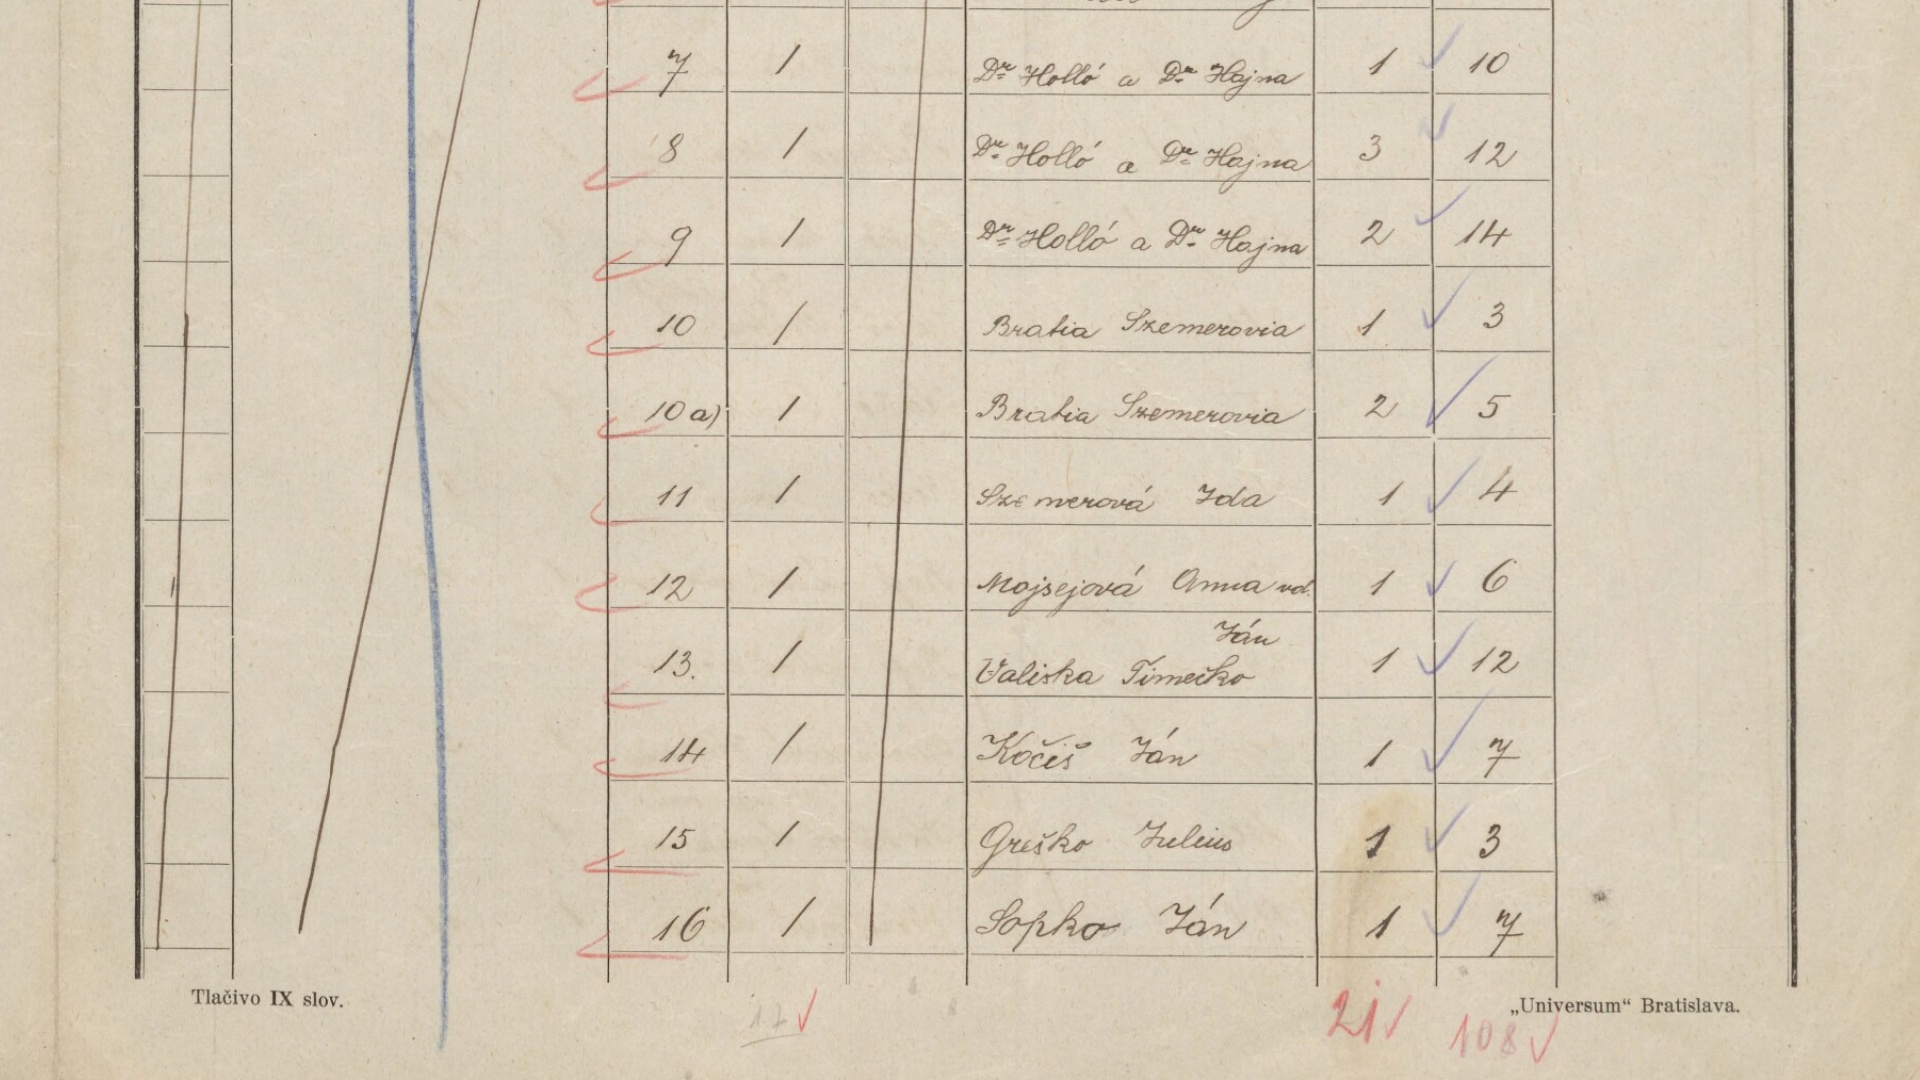 7 / Dr Holló a Dr Hajna 1 10
8 / Dr Holló a Dr Hajna 3 12
9 / Dr Holló a Dr Hajna 2 14
10 / Bratia Szemerovia 1 3
10 a) 1 Bratia Szemerovia 2 5
11 / Szemerová Ida 1 4
12 / Mojsejová Anna vd. 1 6
Ján
13. / Valiska Timečko 1 12
14 / Kočiš Ján 1 7
15 / Greško Julius 1 3
16 / Sopko Ján 1 7
Tlačivo IX slov.
17
21
108
„Universum“ Bratislava.